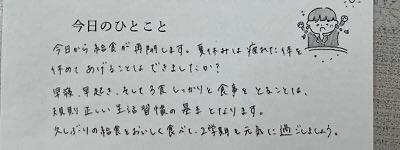 今日のひとこと
今日から給食が再開します。夏休みは疲れた体を
休めてあげることはできましたか？
早寝、早起き、そして3食しっかりと食事をとることは、
規則正しい生活習慣の基本となります。
久しぶりの給食をおいしく食べて、2学期も元気に過ごしましょう。